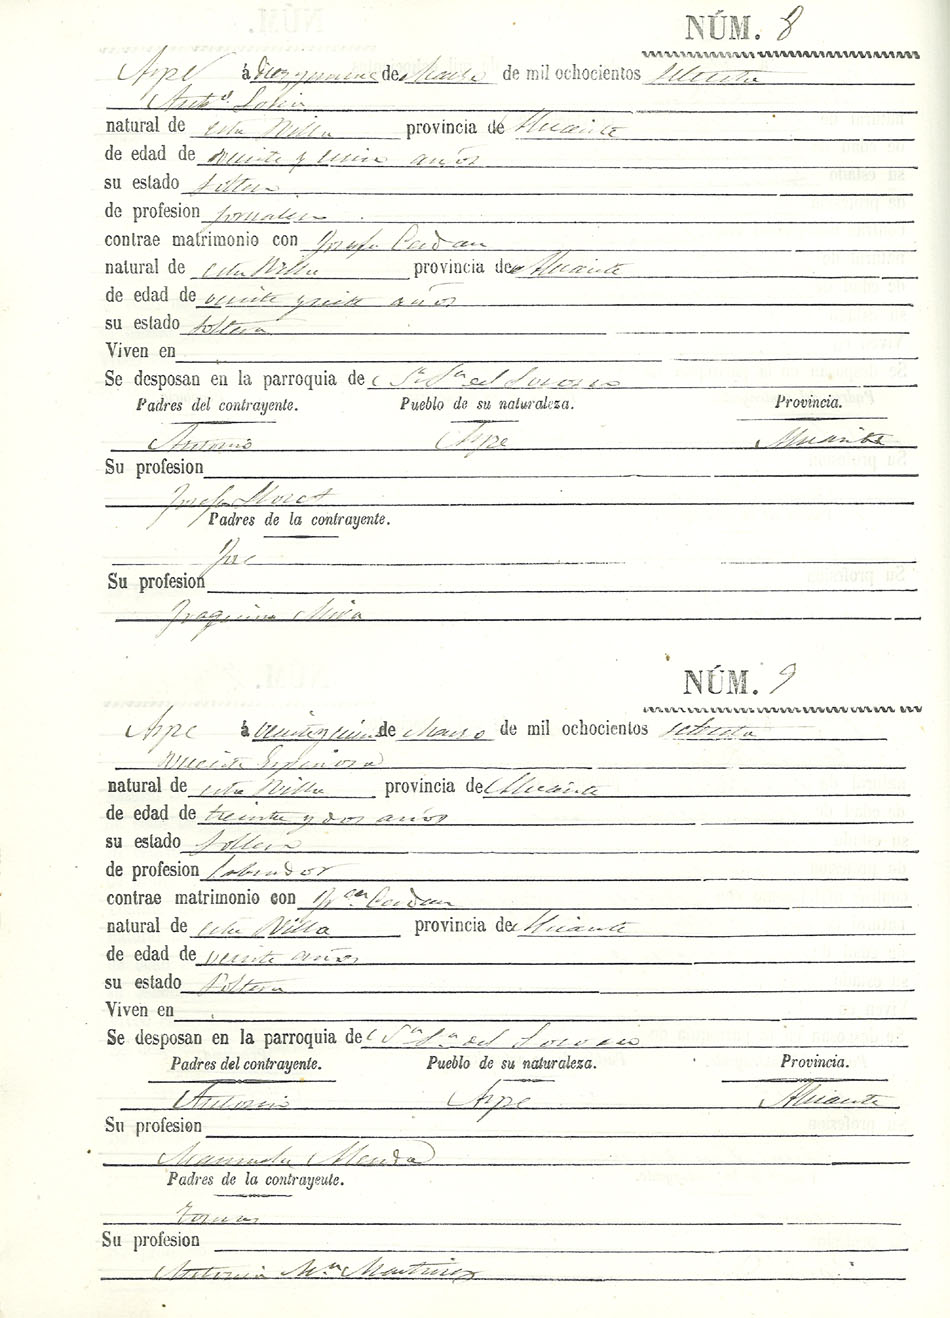 NÚM. 8
Aspe á diez y nueve de Marzo de mil ochocientos setenta
Antº
natural de esta Villa provincia de Alicante
de edad de veinte y años
su estado soltero
de profesion jornalero
contrae matrimonio con Josefa
natural de esta Villa provincia de Alicante
de edad de veinte y siete años
su estado soltera
Viven en
Se desposan en la parroquia de del Socorro
Padres del contrayente. Pueblo de su naturaleza. Provincia.
Antonio Aspe Alicante
Su profesion
Josefa
Padres de la contrayente.
José
Su profesion
Joaquina Mira
NÚM. 9
Aspe á de Marzo de mil ochocientos setenta
Vicente Espinosa
natural de esta Villa provincia de Alicante
de edad de treinta y dos años
su estado soltero
de profesion labrador
contrae matrimonio con
natural de esta Villa provincia de Alicante
de edad de veinte años
su estado soltera
Viven en
Se desposan en la parroquia de del Socorro
Padres del contrayente. Pueblo de su naturaleza. Provincia.
Antonio Aspe Alicante
Su profesion
Manuela
Padres de la contrayente.
Tomas
Su profesion
Antonia Mª Martinez